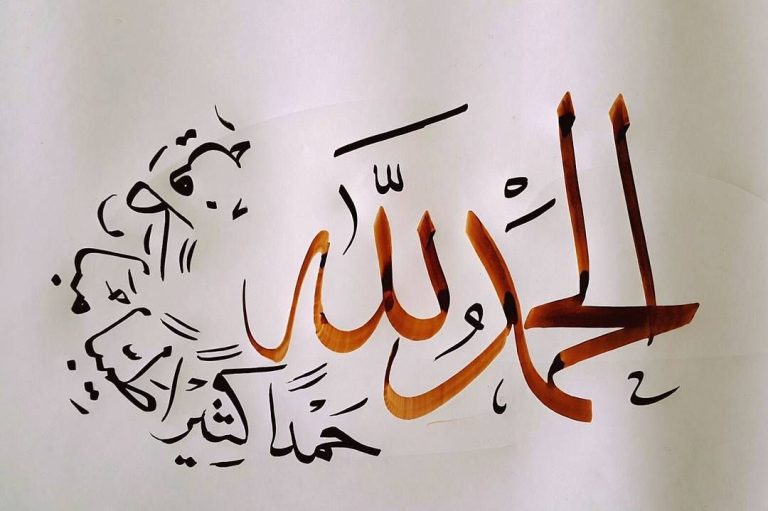 الحَمْدُ لِلَّه
حَمْدًا كَثِيْرًا طَيِّبًا مباركًا فيه